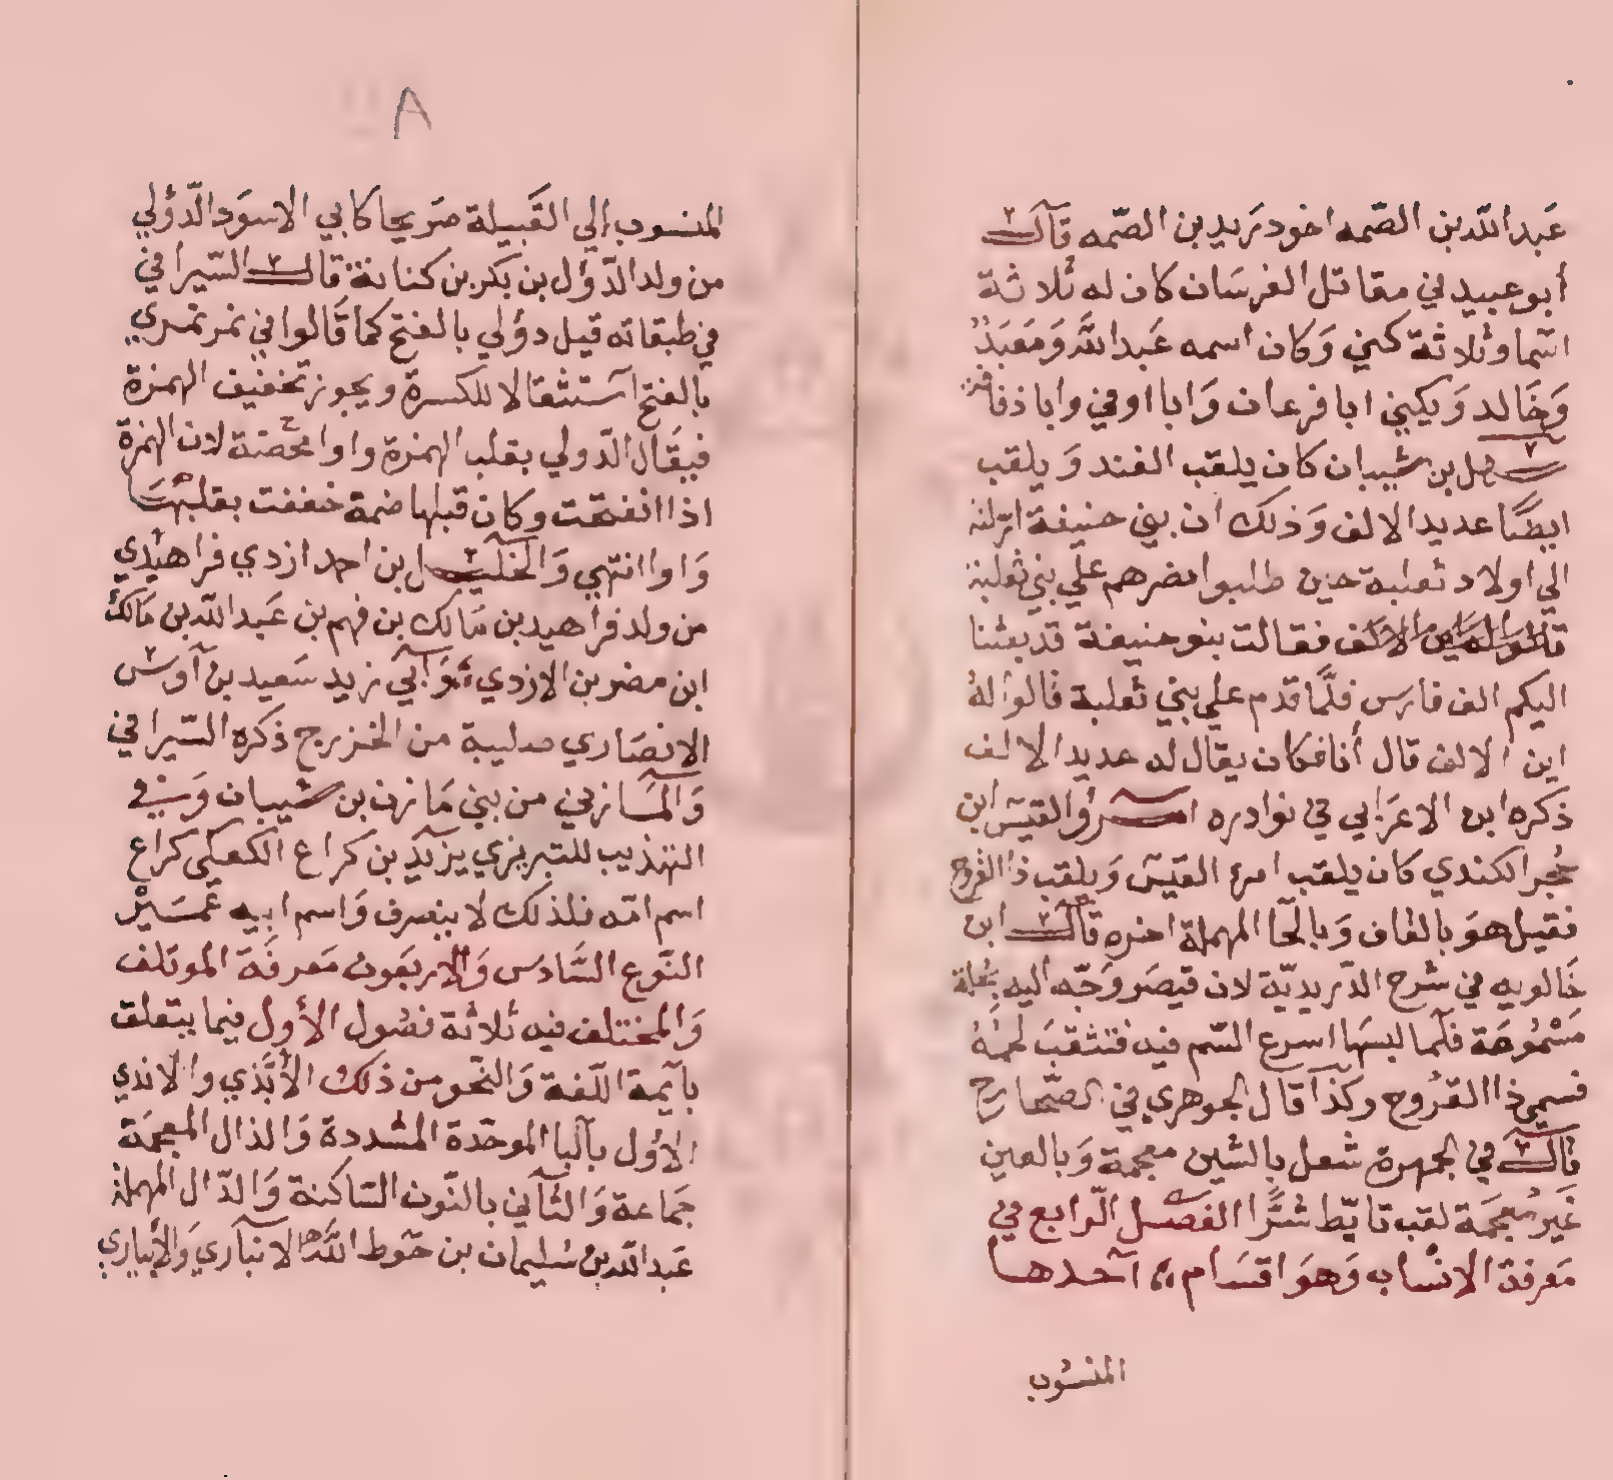 عَبد الله بن الصّمه اخو دريد بن الصّمه قَالَ
أبو عبيد في مقاتل الفرسَان كان له ثلاثة
اسما وثلاثة كني وَكان اسمه عَبد الله وَمَعبَد
وَخَالد وَيكني ابا فرعان وَابا اوفي وابا ذفافة
شهل بن شيبان كان يلقب الفند وَيلقب
ايضًا عديد الالف وَذلك ان بني حنيفة ارسلته
الي اولاد ثعلبة حين طلبوا نصرهم علي بني ثعلبة
فقالت بنو حنيفة قد بعثنا
اليكم الف فارس فلمَّا قدم علي بني ثعلبة قالوا لهُ
اين الالف قال أنا فكان يقال له عديد الالف
ذكره ابن الاعرَابي في نوادره امرؤ القيسَ ابن
حُجر الكندي كان يلقب امرء القيسَ وَيلقب ذا القروح
فقيل هوَ بالقاف وَبالحَا المهملة اخره قَالَ ابن
خَالويه في شرح الدّريديّة لان قيصَر وَجّه اليه بحُلة
مَسْمُومَة فلّما لبسَها اسرع السّم فيه فتثقبَ لحمُهُ
فسمي ذا القرُوح وكذا قال الجوهري في الصّحاح
قَالَ في الجمهرة شعل بالشين معجمة وَبالعين
غَير مُعجمَة لقب تابّط شرًّا الفصَل الرّابع في
مَعرفة الانسْاب وَهوَ اقسَام ،، آحدها
المنسُوب
٨
المنسوب الي القَبيلة صَريحا كابي الاسوَد الدّؤلي
من ولد الدّؤل بن بَكر بن كنانة قال السّيرافي
في طبقاته قيل دؤلي بالفتح كما قَالوا في نمر نمَري
بالفتح آستثقالا للكسرة ويجوز تخفيف الهمزة
فيقَال الدّولي بقلب الهمزة واوا محضة لان الهمزة
اذا انفتحت وكان قبلها ضمة خففت بقلبهَا
وَاوا انتهي وَالخليل بن احمد ازدي فراهيْدي
من ولد فراهيد بن مَالك بن فهم بن عَبد الله بن مَالك
ابن مضر بن الازدي وَآبي زيد سَعيد بن آوسَ
الانصَاري صليبة من الخزرج ذكره السّيرافي
وَالمَازني من بني مَازن بن شيبان وَفي
التهذيب للتبريزي يزيد بن كراع العكلي كراع
اسم امّه فلذلك لا ينصرف وَاسم ابيه عُمَيْر
النوع السَّادس وَالاربعَون مَعرفَة الموتلف
وَالمختلف فيه ثلاثة فصُول الأول فيما يتعلق
بآيمة اللّغة وَالنّحو من ذلك الأبَّذي والاندي
الاوُل بآلبا الموحّدة المشددة وَالذال المعجمَة
جَماعة وَالثآني بالنّون السّاكنة وَالدّال المهملة
عَبد الله بن سُليمان بن حَوط اللَّه الانبآري وَالأبياري